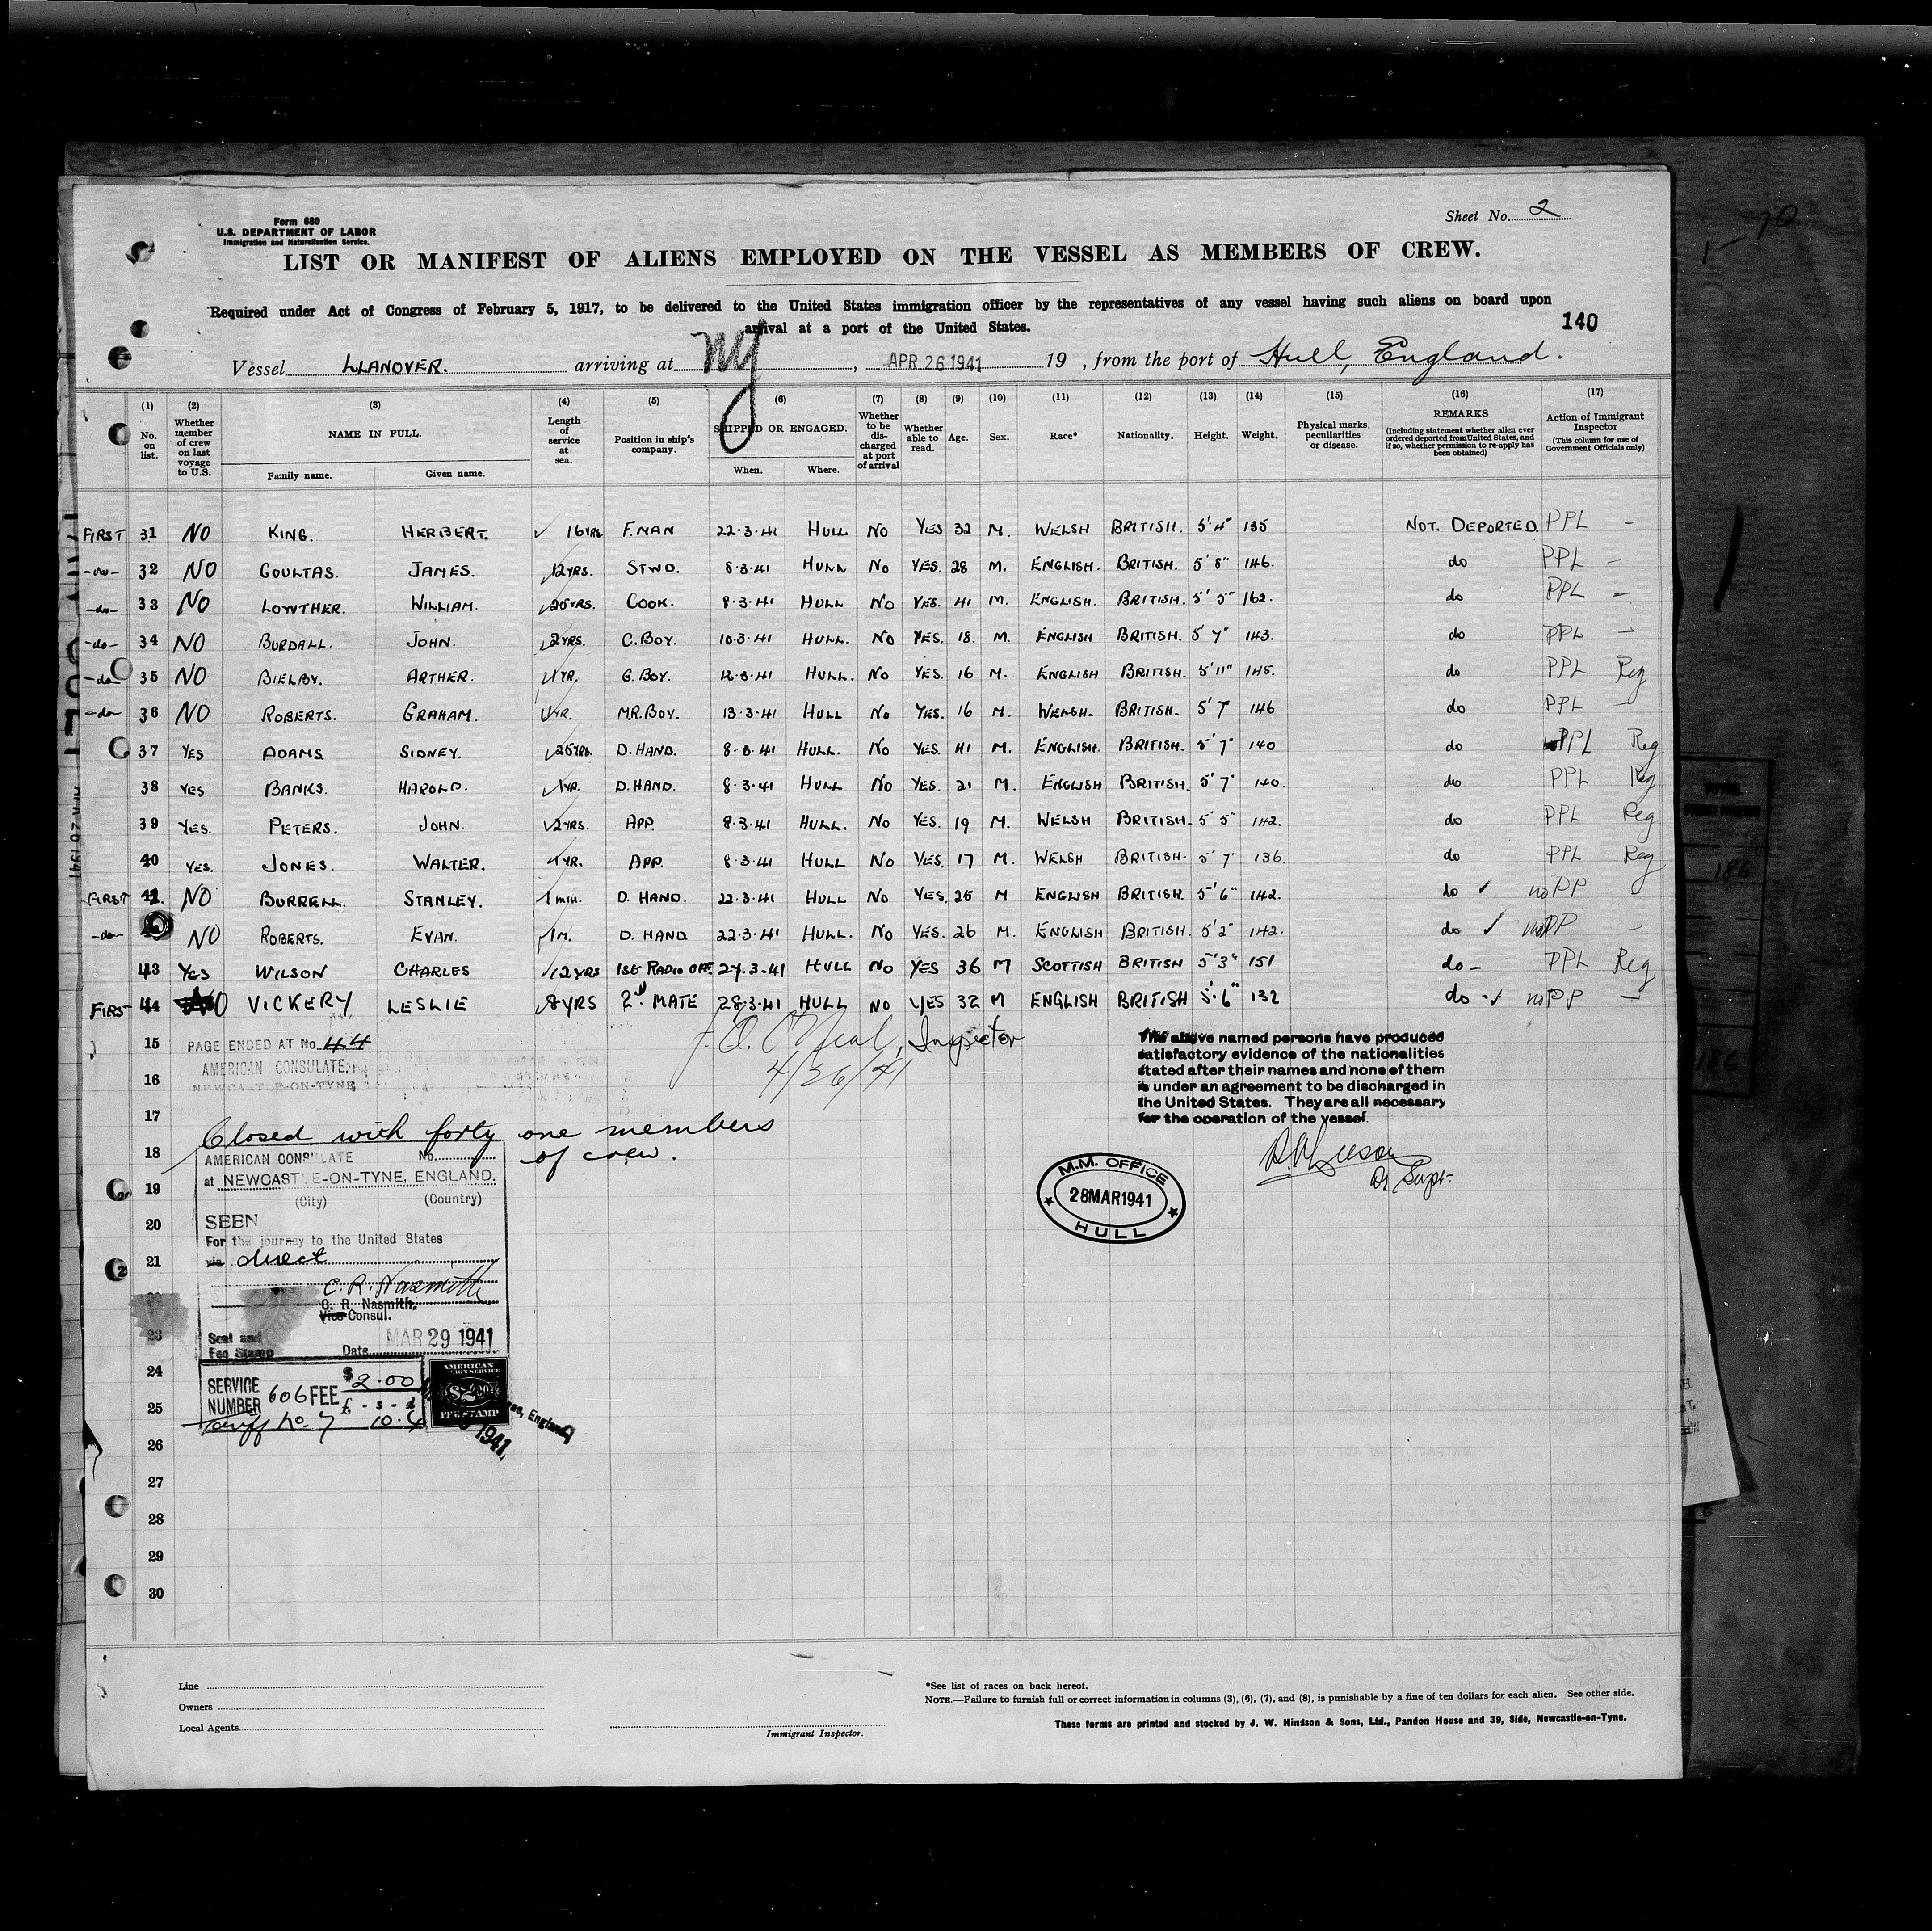 Form 680
U.S. DEPARTMENT OF LABOR
Immigration and Naturalization Service.
Sheet No. 2
LIST OR MANIFEST OF ALIENS EMPLOYED ON THE VESSEL AS MEMBERS OF CREW.
Required under Act of Congress of February 5, 1917, to be delivered to the United States immigration officer by the representatives of any vessel having such aliens on board upon
arrival at a port of the United States.
140
Vessel LLANOVER. arriving at NY, APR 26 1941 19 , from the port of Hull, England.
(1) (2) (3) (4) (5) (6) (7) (8) (9) (10) (11) (12) (13) (14) (15) (16) (17)
No. on list. Whether member of crew on last voyage to U.S. NAME IN FULL. Family name. Given name. Length of service at sea. Position in ship's company. SHIPPED OR ENGAGED. When. Where. Whether to be discharged at port of arrival Whether able to read. Age. Sex. Race* Nationality. Height. Weight. Physical marks, peculiarities or disease. REMARKS (Including statement whether alien ever ordered deported from United States, and if so, whether permission to re-apply has been obtained) Action of Immigrant Inspector (This column for use of Government Officials only)
FIRST 31 NO KING. HERBERT. 16 YRS. F.MAN 22·3·41 HULL NO YES 32 M. WELSH BRITISH. 5'4" 135 NOT. DEPORTED. PPL -
-do- 32 NO GOULTAS. JAMES. 12 YRS. STWD. 8·3·41 HULL NO YES. 28 M. ENGLISH. BRITISH. 5'8" 146. do PPL -
-do- 33 NO LOWTHER. WILLIAM. 25 YRS. COOK. 8·3·41 HULL NO YES. 41 M. ENGLISH. BRITISH. 5'5" 162. do PPL -
-do- 34 NO BURDALL. JOHN. 2 YRS. C. BOY. 10·3·41 HULL. NO YES. 18. M. ENGLISH BRITISH. 5'7" 143. do PPL -
-do- 35 NO BIELBY. ARTHER. 1 YR. G. BOY. 12·3·41 HULL. NO YES. 16 M. ENGLISH BRITISH. 5'11" 145. do PPL Reg
-do- 36 NO ROBERTS. GRAHAM. 1 YR. MR. BOY. 13·3·41 HULL NO YES. 16 M. WELSH- BRITISH- 5'7" 146 do PPL -
37 YES ADAMS SIDNEY. 25 YRS. D. HAND. 8·3·41 HULL. NO YES. 41 M. ENGLISH. BRITISH. 5'7" 140 do PPL Reg
38 YES BANKS. HAROLD. 1 YR. D. HAND. 8·3·41 HULL NO YES. 21 M. ENGLISH BRITISH. 5'7" 140. do PPL Reg
39 YES. PETERS. JOHN. 2 YRS. APP. 8·3·41 HULL. NO YES. 19 M. WELSH BRITISH. 5'5" 142. do PPL Reg
40 YES. JONES. WALTER. 1 YR. APP. 8·3·41 HULL NO YES. 17 M. WELSH BRITISH. 5'7" 136. do PPL Reg
FIRST 41. NO BURRELL. STANLEY. 1 mth. D. HAND. 22·3·41 HULL NO YES. 25 M ENGLISH BRITISH. 5'6" 142. do ✓ no PP
-do- NO ROBERTS. EVAN. 1 M. D. HAND 22·3·41 HULL. NO YES. 26 M. ENGLISH BRITISH. 5'2" 142. do ✓ no PP -
43 YES WILSON CHARLES 12 YRS 1ST RADIO OFF. 27·3·41 HULL NO YES 36 M SCOTTISH BRITISH 5'3" 151 do- PPL Reg
FIRST 44 NO VICKERY LESLIE 8 YRS 2nd MATE 28·3·41 HULL NO YES 32 M ENGLISH BRITISH 5'6" 132 do ✓ no PP -
15 PAGE ENDED AT No. 44
AMERICAN CONSULATE
NEWCASTLE-ON-TYNE
J. O. O'Neal, Inspector
4/26/41
The above named persons have produced
satisfactory evidence of the nationalities
stated after their names and none of them
is under an agreement to be discharged in
the United States. They are all necessary
for the operation of the vessel.
Dy. Supt.
16
17
Closed with forty one members
of crew.
18
AMERICAN CONSULATE No.
at NEWCASTLE-ON-TYNE, ENGLAND.
(City) (Country)
19
20
SEEN
For the journey to the United States
21
via direct
C. R. Nasmith
C. R. Nasmith.
Vice Consul.
23
Seal and
Fee Stamp
Date MAR 29 1941
M.M. OFFICE
28 MAR 1941
HULL
24
SERVICE NUMBER 606 FEE $2.00
£ - s - d
25
Tariff No. 7 10.4
AMERICAN
FOREIGN SERVICE
$2.00
FEE STAMP
England
1941
26
27
28
29
30
Line
Owners
Local Agents
Immigrant Inspector.
*See list of races on back hereof.
NOTE.—Failure to furnish full or correct information in columns (3), (6), (7), and (8), is punishable by a fine of ten dollars for each alien. See other side.
These forms are printed and stocked by J. W. Hindson & Sons, Ltd., Pandon House and 39, Side, Newcastle-on-Tyne.
186
186